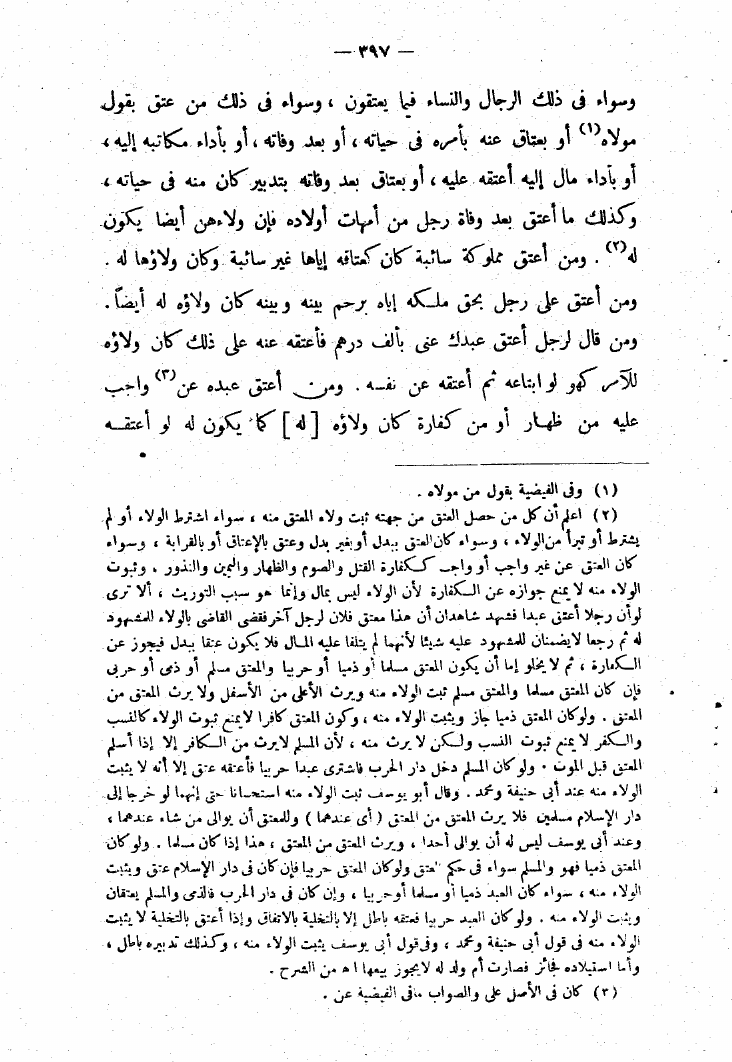 — ٣٩٧ —
وسواء فى ذلك الرجال والنساء فيما يعتقون ، وسواء فى ذلك من عتق بقول
مولاه(١) أو بعتاق عنه بأمره فى حياته ، أو بعد وفاته ، أو بأداء مكاتبه إليه ،
أو بأداء مال إليه أعتقه عليه ، أو بعتاق بعد وفاته بتدبير كان منه فى حياته ،
وكذلك ما أعتق بعد وفاة رجل من أمهات أولاده فإن ولاءهن أيضا يكون
له(٢) . ومن أعتق مملوكة سائبة كان كعتاقه إياها غير سائبة وكان ولاؤها له .
ومن أعتق على رجل بحق ملكه إياه برحم بينه وبينه كان ولاؤه له أيضاً .
ومن قال لرجل أعتق عبدك عنى بألف درهم فأعتقه عنه على ذلك كان ولاؤه
للآمر كهو لو ابتاعه ثم أعتقه عن نفسه . ومن أعتق عبده عن(٣) واجب
عليه من ظهار أو من كفارة كان ولاؤه [ له ] كما يكون له لو أعتقه
(١) وفى الفيضية بقول من مولاه .
(٢) اعلم أن كل من حصل العتق من جهته ثبت ولاء المعتق منه ، سواء اشترط الولاء أو لم
يشترط أو تبرأ من الولاء ، وسواء كان العتق ببدل أو بغير بدل وعتق بالإعتاق أو بالقرابة ، وسواء
كان العتق عن غير واجب أو واجب ككفارة القتل والصوم والظهار واليمين والنذور . وثبوت
الولاء منه لا يمنع جوازه عن الكفارة لأن الولاء ليس بمال وإنما هو سبب التوريث ، ألا ترى
لو أن رجلا أعتق عبدا فشهد شاهدان أن هذا معتق فلان لرجل آخر فقضى القاضى بالولاء للمشهود
له ثم رجعا لا يضمنان للمشهود عليه شيئا لأنهما لم يتلفا عليه المال فلا يكون عتقا ببدل فيجوز عن
الكفارة ، ثم لا يخلو إما أن يكون المعتق مسلما أو ذميا أو حربيا والمعتق مسلم أو ذمى أو حربى
فإن كان المعتق مسلما والمعتق مسلم ثبت الولاء منه ويرث الأعلى من الأسفل ولا يرث المعتق من
المعتق . ولو كان المعتق ذميا جاز ويثبت الولاء منه ، وكون المعتق كافرا لا يمنع ثبوت الولاء كالنسب
والكفر لا يمنع ثبوت النسب ولكن لا يرث منه ، لأن المسلم لا يرث من الكافر إلا إذا أسلم
المعتق قبل الموت . ولو كان المسلم دخل دار الحرب فاشترى عبدا حربيا فأعتقه عتق إلا أنه لا يثبت
الولاء منه عند أبى حنيفة ومحمد . وقال أبو يوسف ثبت الولاء منه استحسانا حتى إنهما لو خرجا إلى
دار الإسلام مسلمين فلا يرث المعتق من المعتق ( أى عندهما ) وللمعتق أن يوالى من شاء عندهما ،
وعند أبى يوسف ليس له أن يوالى أحدا ، ويرث المعتق من المعتق ، هذا إذا كان مسلما . ولو كان
المعتق ذميا فهو والمسلم سواء فى حكم العتق ولو كان المعتق حربيا فإن كان فى دار الإسلام عتق ويثبت
الولاء منه ، سواء كان العبد ذميا أو مسلما أو حربيا ، وإن كان فى دار الحرب فالذمى والمسلم يعتقان
ويثبت الولاء منه . ولو كان العبد حربيا فعتقه باطل إلا بالتخلية بالاتفاق وإذا أعتق بالتخلية لا يثبت
الولاء منه فى قول أبى حنيفة ومحمد ، وفى قول أبى يوسف يثبت الولاء منه ، وكذلك تدبيره باطل ،
وأما استيلاده فجائز فصارت أم ولد له لا يجوز بيعها اه من الشرح .
(٣) كان فى الأصل على والصواب مافى الفيضية عن .